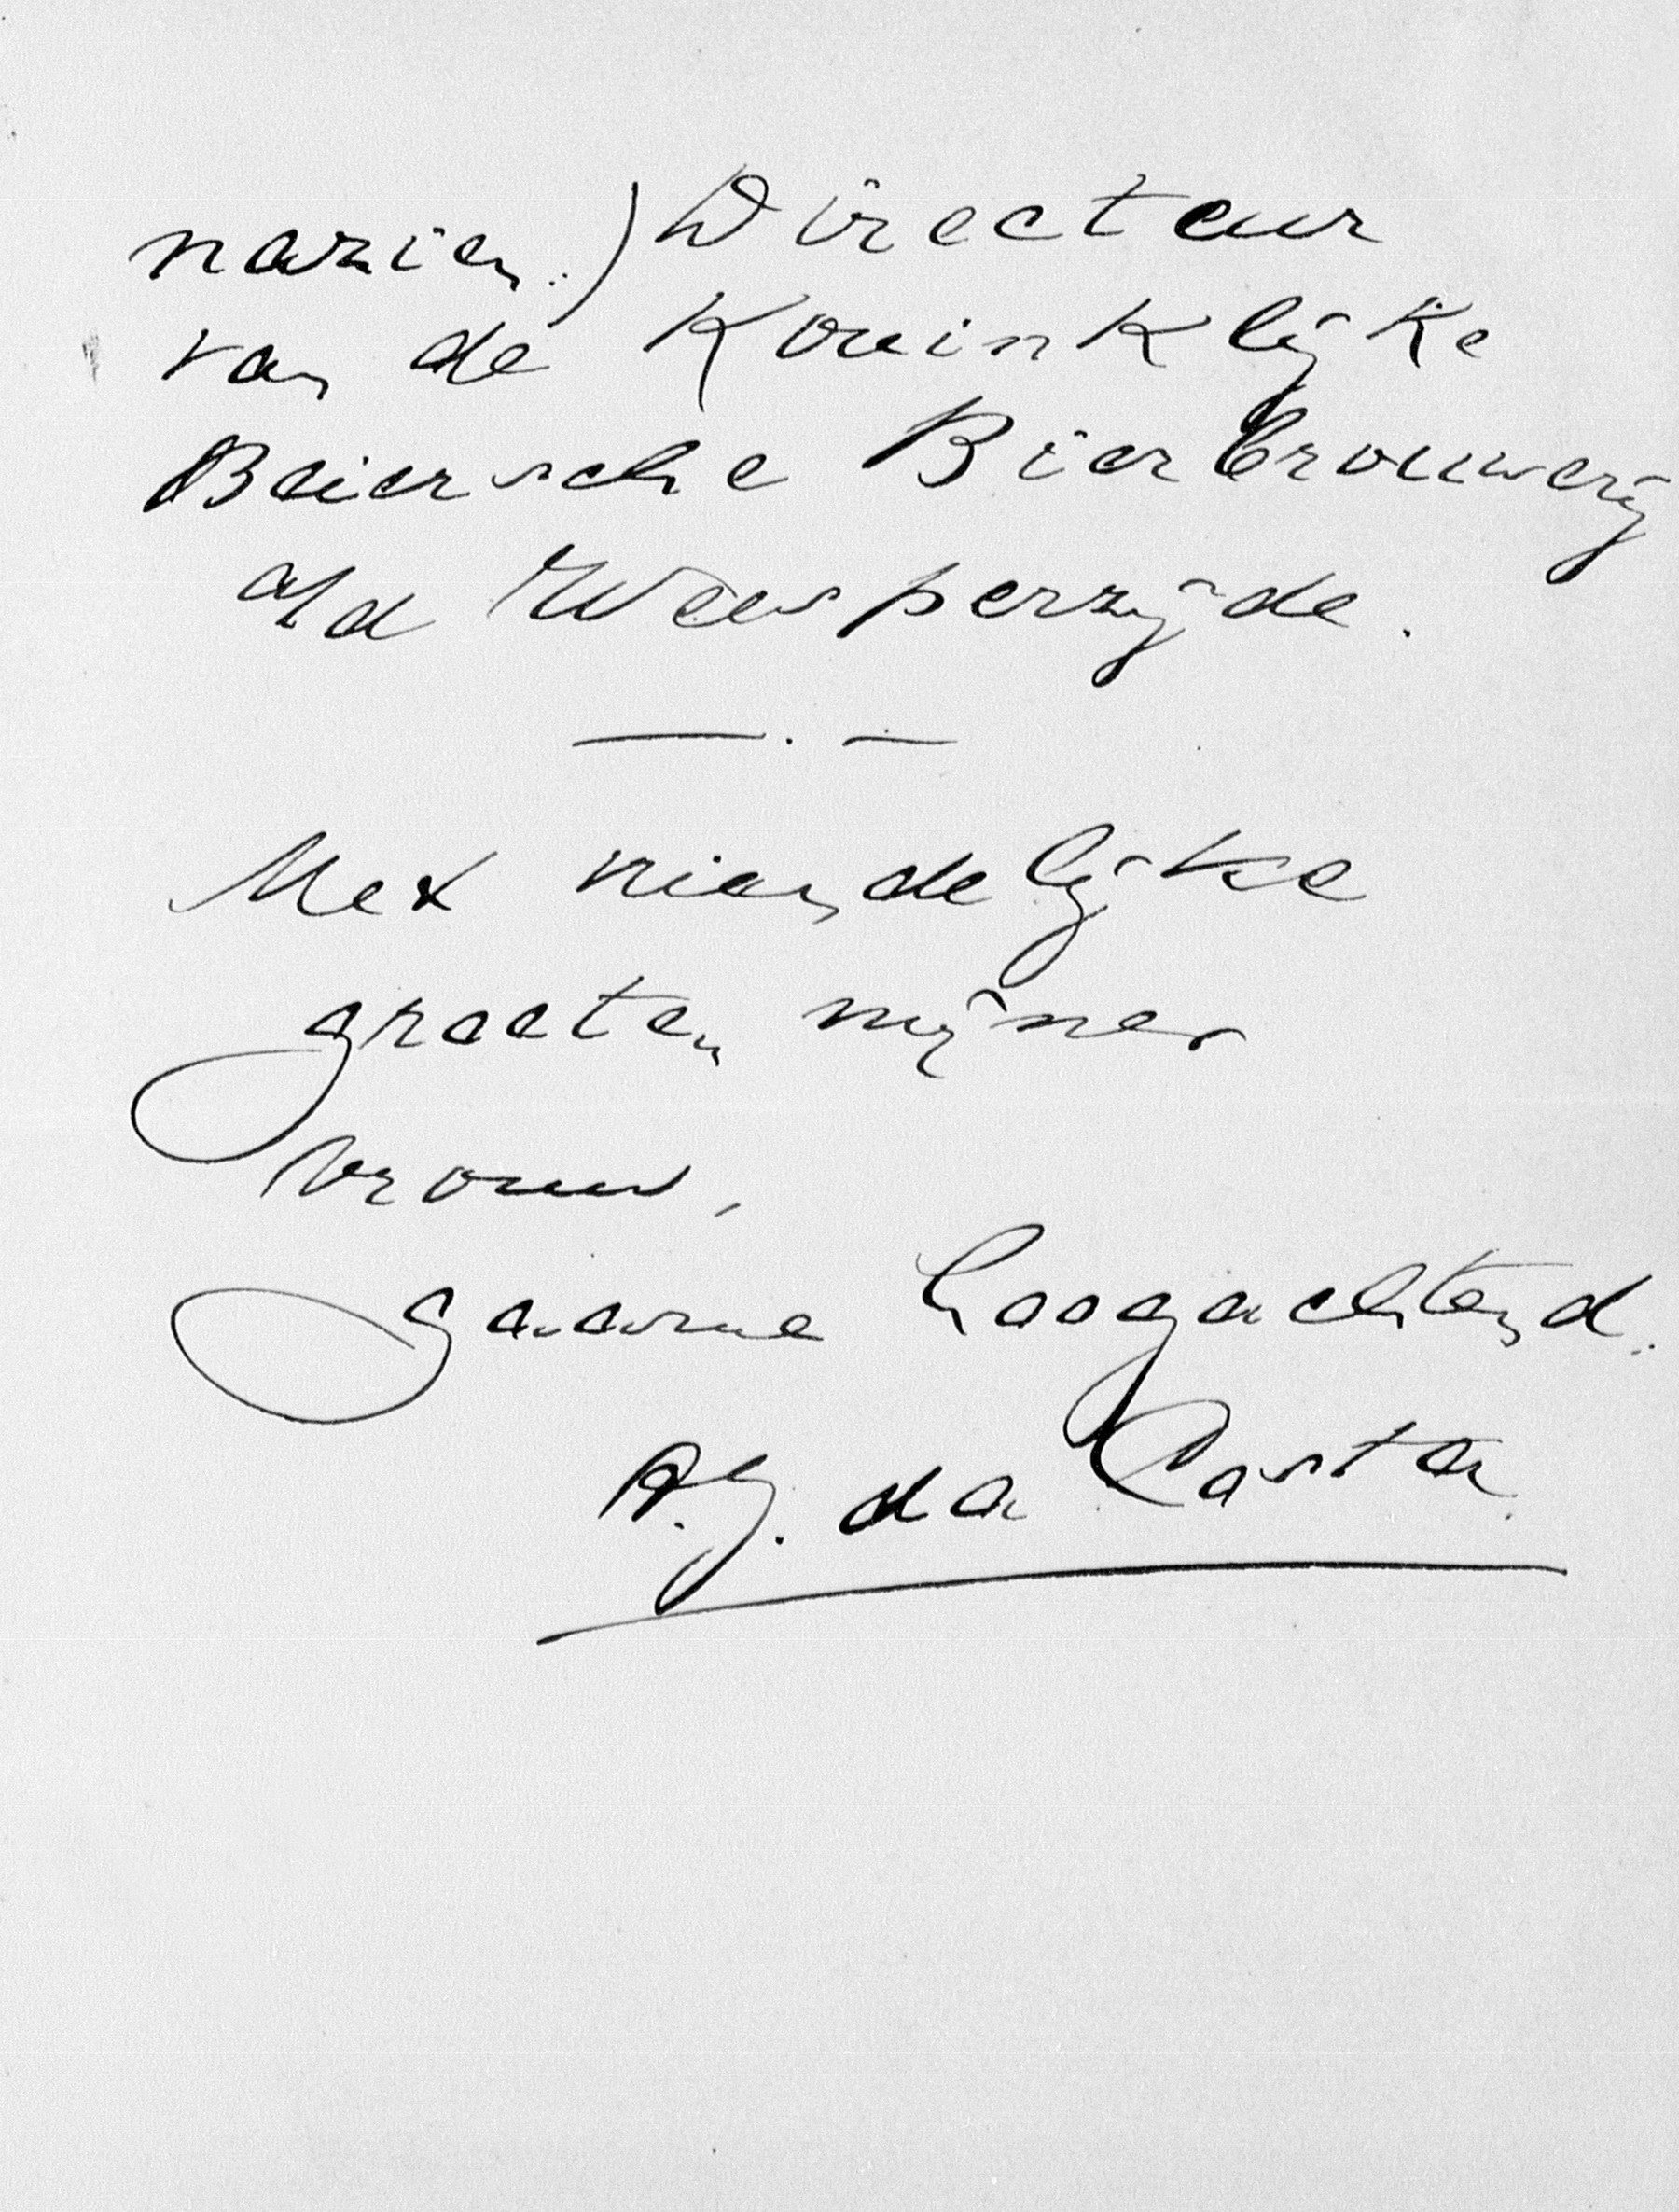 nazien.) Directeur
van de Koninklijke
Beiersche Bierbrouwerij
a/d Weesperzijde.
— . —
Met vriendelijke
groeten mijner
vrouw,
Gaarne hoogachtend.
A.J. da Costa.